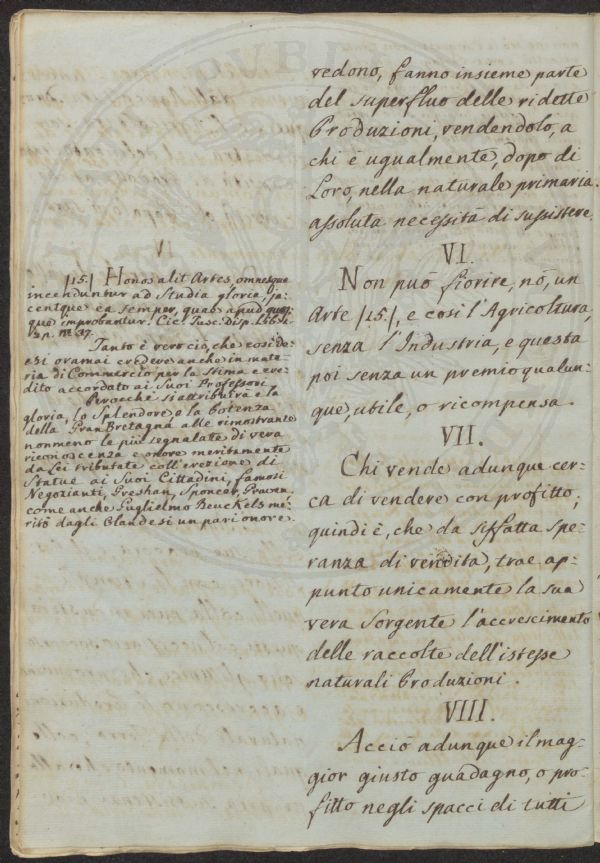 vedono, fanno insieme parte
del superfluo delle ridette
Produzioni, vendendolo, a
chi è ugualmente, dopo di
Loro, nella naturale primaria,
assoluta necessità di sussistere.
VI.
Non può fiorire, nò, un
Arte /15/, e così l'Agricoltura,
senza l'Industria, e questa
poi senza un premio qualun=
que, utile, o ricompensa.
VII.
Chi vende adunque cer=
ca di vendere con profitto;
quindi è, che da siffatta spe=
ranza di vendita, trae ap=
punto unicamente la sua
vera sorgente l'accrescimento
delle raccolte dell'istesse
naturali Produzioni.
VIII.
Acciò adunque il mag=
gior giusto guadagno, o pro=
fitto negli spacci di tutti
/15/ Honos alit Artes, omnesque
incenduntur ad Studia gloria, ja=
centque ea semper, quae apud quos=
que improbantur. Cic. Tusc. disp. Lib. 1.
Tanto è vero ciò, che così de=
esi oramai credere anche in mate=
ria di Commercio per la stima e cre=
dito accordato ai Suoi Professori.
Perocchè si attribuirà e la
gloria, lo Splendore, e la Potenza
della Gran Bretagna alle rimostranze
nonmeno le più segnalate di vera
riconoscenza e onore meritamente
da Lei tributate coll'erezione di
Statue ai Suoi Cittadini, famosi
Negozianti, Greshan, Sponcer,
come anche Guglielmo Beuckels me=
ritò dagli Olandesi un pari onore.